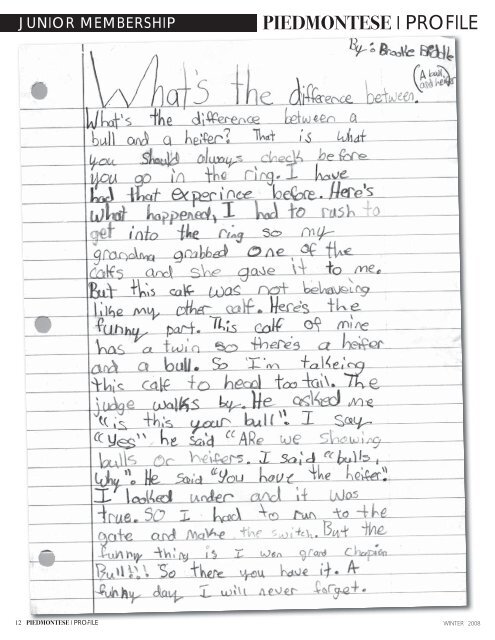 JUNIOR MEMBERSHIP
PIEDMONTESE | PROFILE
By: Brooke Biddle
What's the difference between.
(A bull, and heifer)
What's the difference between a
bull and a heifer? That is what
you should always check before
you go in the ring. I have
had that experince before. Here's
what happened, I had to rush to
get into the ring so my
grandma grabbed one of the
calfs and she gave it to me.
But this calf was not behaveing
like my other calf. Here's the
funny part. This calf of mine
has a twin so there's a heifer
and a bull. So I'm talkeing
this calf to head too tail. The
judge walks by. He asked me
"is this your bull". I say
"yes" he said "ARe we showing
bulls or heifers. I said "bulls,
why". He said "you have the heifer."
I looked under and it was
true. SO I had to run to the
gate and make the switch. But the
funny thing is I won grand chapion
Bull!!! So there you have it. A
funny day I will never forget.
12 PIEDMONTESE | PROFILE
WINTER 2008